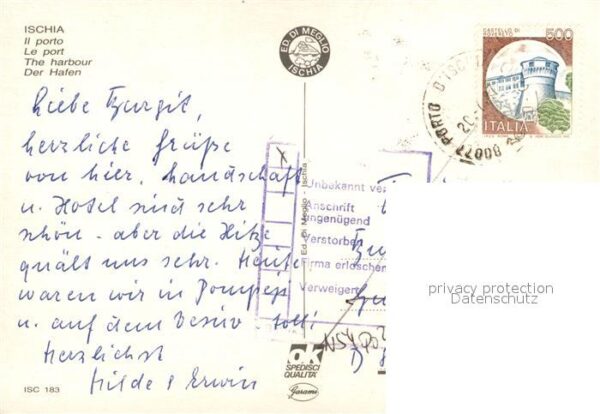 ISCHIA
Il porto
Le port
The harbour
Der Hafen
ED. DI MEGLIO
ISCHIA
CASTELLO DI
500
ITALIA
PORTO D'ISC
80077
Liebe Burgit,
herzliche Grüße
von hier, Landschaft
u. Hotel sind sehr
schön - aber die Hitze
quält uns sehr. Heute
waren wir in Pompeji
u. auf dem Vesuv - toll!
Herzlichst
Hilde & Erwin
x
Unbekannt ve
Anschrift
ungenügend
Verstorben
Firma erloschen
Verweigert
Ed. Di Meglio - Ischia
privacy protection
Datenschutz
ok
SPEDISCI
QUALITA'
Garami
ISC 183